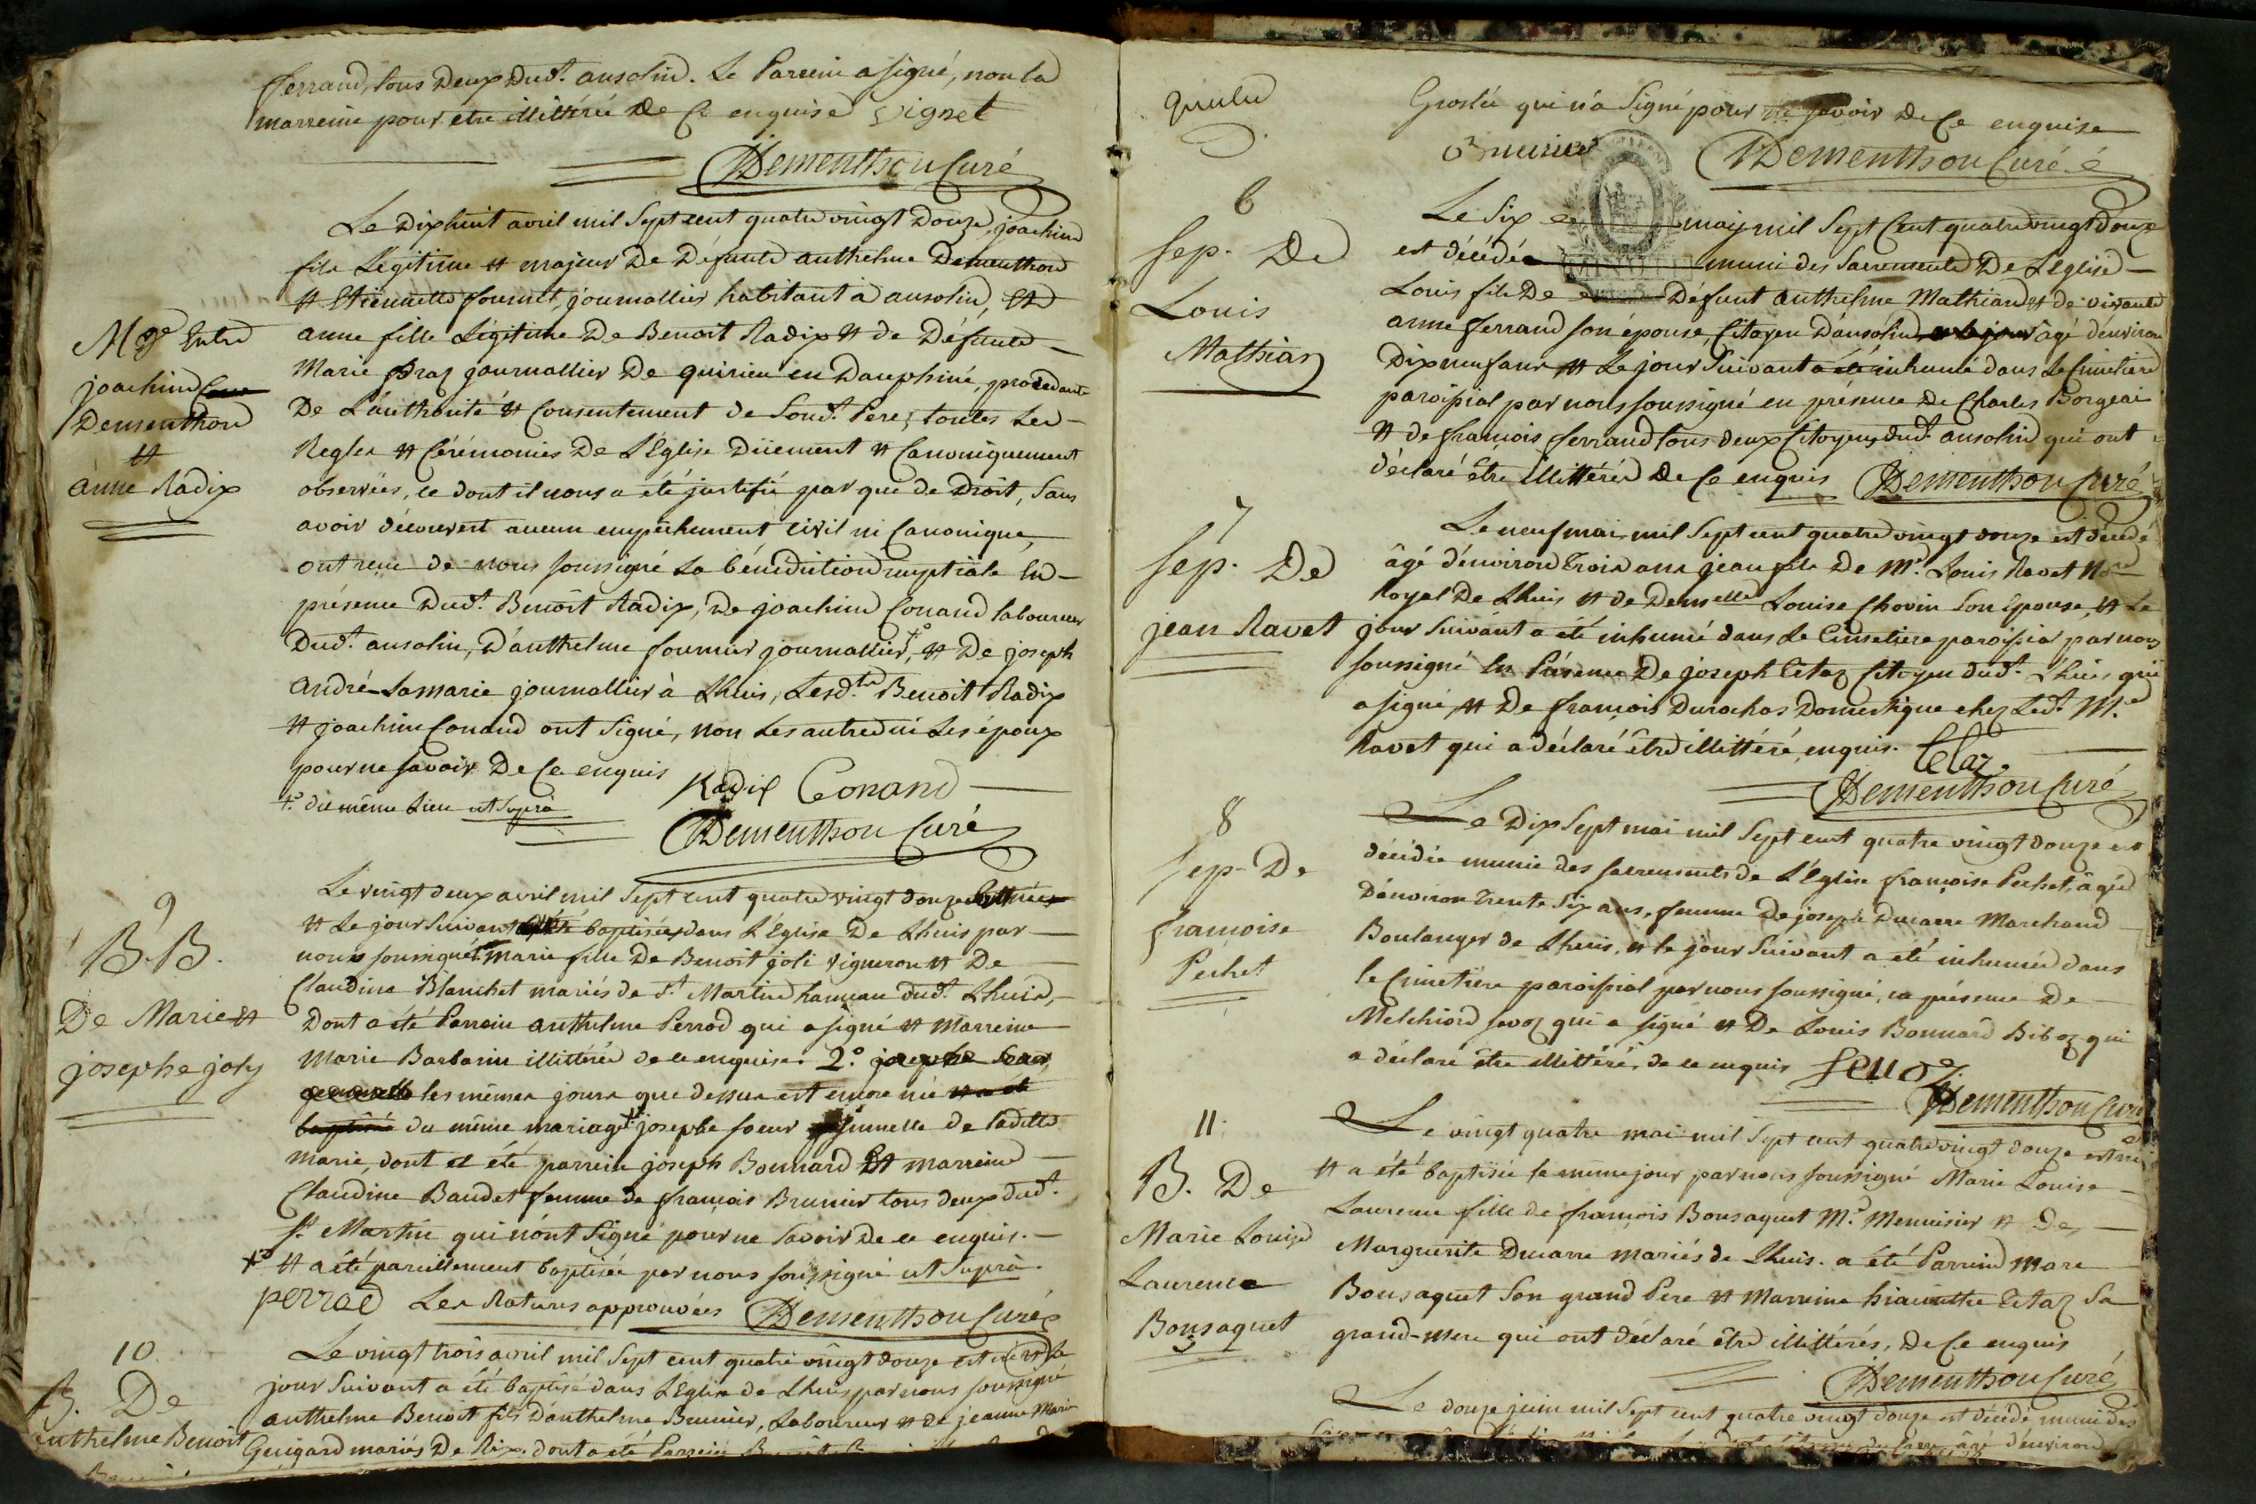 ferrand, tous deux dud.t ansolin. Le Parrein a signé, non la
marreine pour etre illittérée de ce enquise Vignet
Dementhon Curé
Le dixhuit avril mil Sept cent quatre vingt douze, joachim
fils Légitime et majeur de Défunte anthelme Dementhon
et Etiennette fournet, journallier habitant à ansolin, Et
Mge Entre
joachim
Dementhon
et
anne Radix
anne fille Légitime De Benoit Radix et de Défunte
Marie Braz journallier De quirieu en Dauphiné, procedante
De L'authorité et Consentement de Sond.t Pere; toutes Les
Regles et Cérémonies De L'Eglise Düement et Canoniquement
observées, ce dont il nous a été justifié par que de Droit, Sans
avoir découvert aucun empêchement Civil ni Canonique,
ont reçu de nous soussigné La bénédiction nuptiale En
présence Dud.t Benoît Radix, De joachim Conand laboureur
Dud.t ansolin, D'anthelme fournier journallier, +° et De joseph
André-Lamarie journallier à Lhuis, Lesd.ts Benoit Radix
et joachim Conand ont Signé, non Les autres ni Les époux
pour ne savoir De Ce enquis Radix Conand
+° du même Lieu ut Suprà
Dementhon Curé
9
B.B.
De Marie et
josephe joly
Le vingt deux avril mil Sept cent quatre vingt douze
et Le jour Suivant a été baptisée dans L'Eglise De Lhuis par
nous soussigné Marie fille De Benoît joli Vigneron et De
Claudine Blanchet mariés de S.t Martin hameau dud.t Lhuis,
Dont a été Parrein anthelme Perrod qui a signé et Marreine
Marie Barbarin illittérée de ce enquise. 2.° josephe Sœur
les mêmes jours que dessus est encore née
du même mariage +° josephe soeur jumelle de Ladite
Marie, dont a été parrein joseph Bonnard Et marreine
Claudine Baudet femme de françois Brunier tous deux dud.t
S.t Martin qui n'ont Signé pour ne Savoir De ce enquis.
+° et a été pareillement baptisée par nous soussigné ut Suprà.
perrod Les Ratures approuvées Dementhon Curé
10
B. De
anthelme Benoit
Le vingt trois avril mil Sept cent quatre vingt douze est né et Le
jour Suivant a été baptisé dans L'Eglise de Lhuis par nous soussigné
anthelme Benoit fils D'anthelme Brunier, Laboureur et de jeanne Marie
Guigard mariés De Rix. dont a été Parrein
Groslée qui n'a Signé pour ne savoir De Ce enquise
Brunier
Dementhon Curé
6
Sep. De
Louis
Mathian
Le Six may mil Sept Cent quatre vingt douze
est décédé muni des Sacrements De L'Eglise
Louis fils De Défunt anthelme Mathian et de vivante
anne ferrand son épouse, Citoyen D'ansolin âgé d'environ
Dix neuf ans et Le jour Suivant a été inhumé dans Le Cimetiere
paroissial par nous soussigné en présence De Charles Borgeai
et de françois ferrand tous deux Citoyens dud.t ansolin qui ont
déclaré être illittérés De Ce enquis Dementhon Curé
7
Sep. De
jean Ravet
Le neuf mai mil Sept cent quatre vingt douze est décédé
âgé d'environ Trois ans jean fils De M.r Louis Ravet N.re
Royal De Lhuis et de Demselle Louise Chovin Son Epouse, et Le
jour Suivant a été inhumé dans Le Cimetiere paroissial par nous
soussigné En Présence De joseph Cetaz Citoyen dud.t Lhuis qui
a signé, et De françois Durochas Domestique chez Led.t M.e
Ravet qui a déclaré être illittéré, enquis. Cetaz
Dementhon Curé
8
Sep. De
françoise
Pechet
Le Dix Sept mai mil Sept cent quatre vingt douze est
décédée munie des sacrements de L'Eglise françoise Pechet, âgée
D'environ Trente Six ans, femme De joseph Ducarre Marchand
Boulanger de Lhuis, et le jour Suivant a été inhumée dans
le Cimetière paroissial par nous soussigné, en présence De
Melchiord sevoz qui a signé et De Louis Bonnard Biboz qui
a déclaré être illittéré, de ce enquis sevoz
Dementhon Curé
11.
B. De
Marie Louise
Laurence
Bonsaquet
Le vingt quatre mai mil Sept cent quatre vingt douze est née
et a été baptisée le même jour par nous soussigné Marie Louise
Laurence fille de françois Bonsaquet M.e Menuisier et De
Marguerite Ducarre mariés de Lhuis. a été Parrein Marc
Bonsaquet Son grand Pere et Marreine hiacinthe Cetaz Sa
grand-mere qui ont déclaré être illittérés, De Ce enquis
Dementhon Curé
Le douze juin mil Sept cent quatre vingt douze est décédé muni des
âgé d'environ